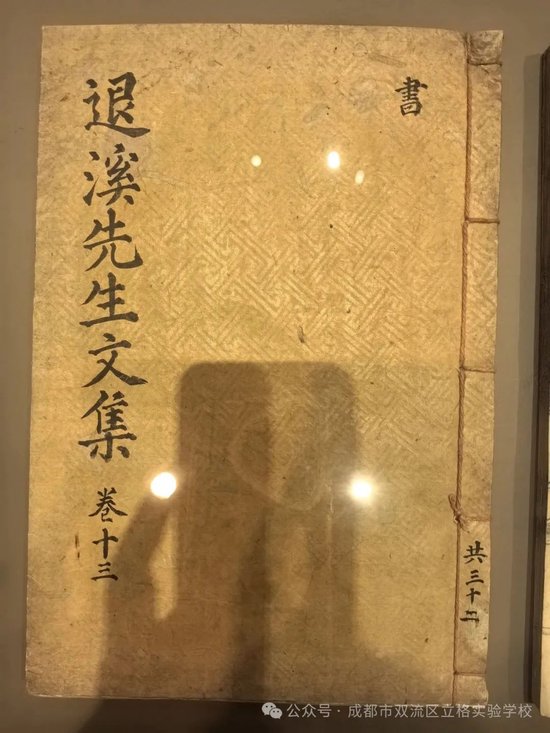 書
退溪先生文集 卷十三
共三十二
公众号 · 成都市双流区立格实验学校